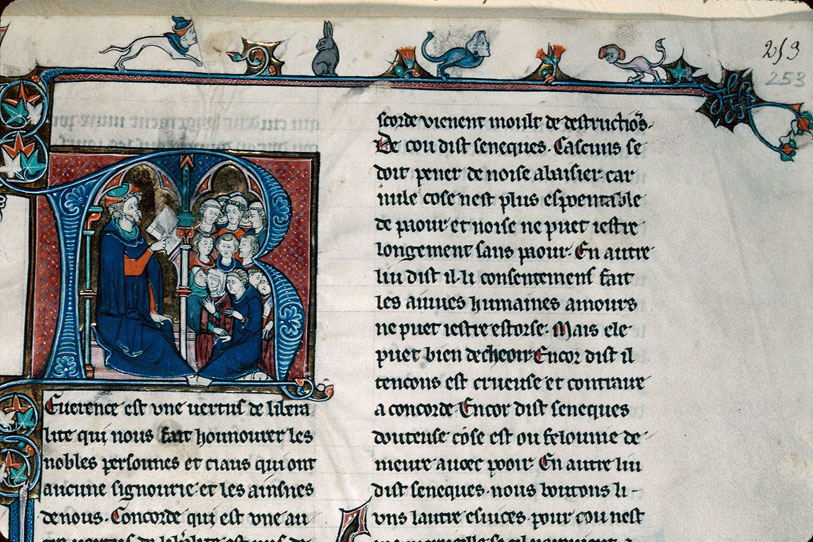 253
253
R
Euerence est vne uertus de libera
lite qui nous fait hounourer les
nobles persounes et ciaus qui ont
aucune signourie et les ainsnes
de nous. Concorde qui est vne au
scorde vienent moult de destructiōs.
De cou dist seneques. Cascuns se
doit pener de noise abaisier car
nule cose nest plus espoentable
de paour et noise ne puet iestre
longement sans paour. En autre
liu dist il. li consentemens fait
les aimes humaines amours
ne puet iestre estorse. Mais ele
puet bien decheoir. Encor dist il
tencons est crueuse et contraire
a concorde. Encor dist seneques
douteuse cose est ou felounie de
meure auoec pooir. En autre liu
dist seneques. nous boutons li
vns lautre es uices. pour cou nest